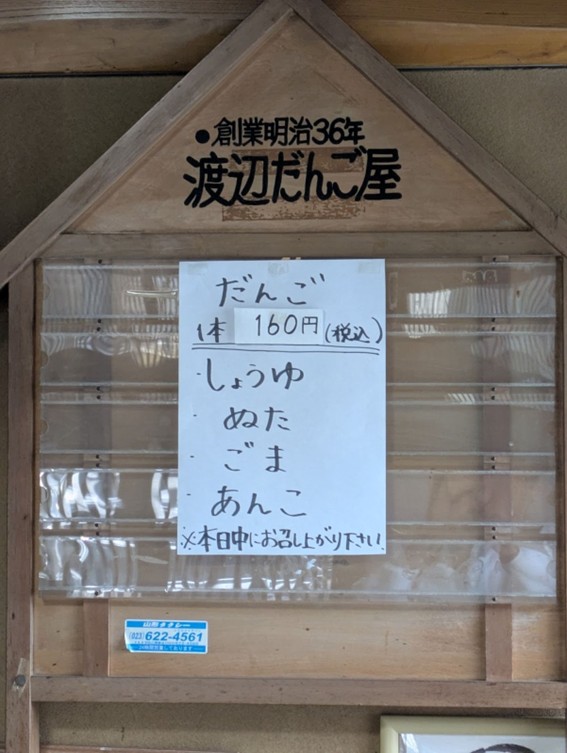 ●創業明治36年
渡辺だんご屋
だんご
1本 160円(税込)
・しょうゆ
・ぬた
・ごま
・あんこ
※本日中にお召し上がり下さい
山形タクシー
(023)622-4561